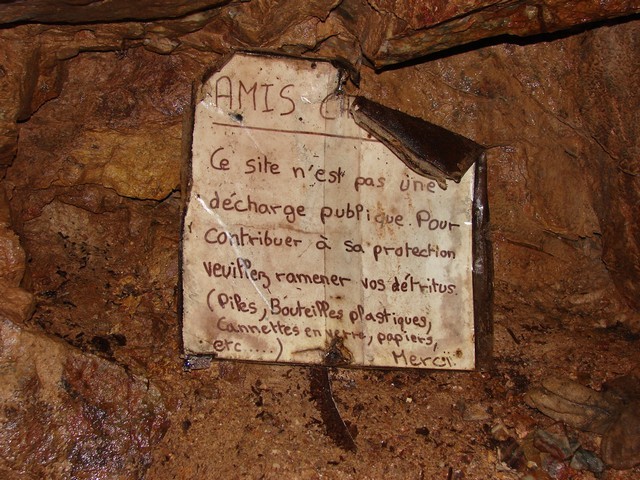 AMIS
Ce site n'est pas une
décharge publique. Pour
Contribuer à sa protection
veuillez ramener vos détritus.
(Piles, Bouteilles plastiques,
Cannettes en verre, papiers,
etc.....) Merci.